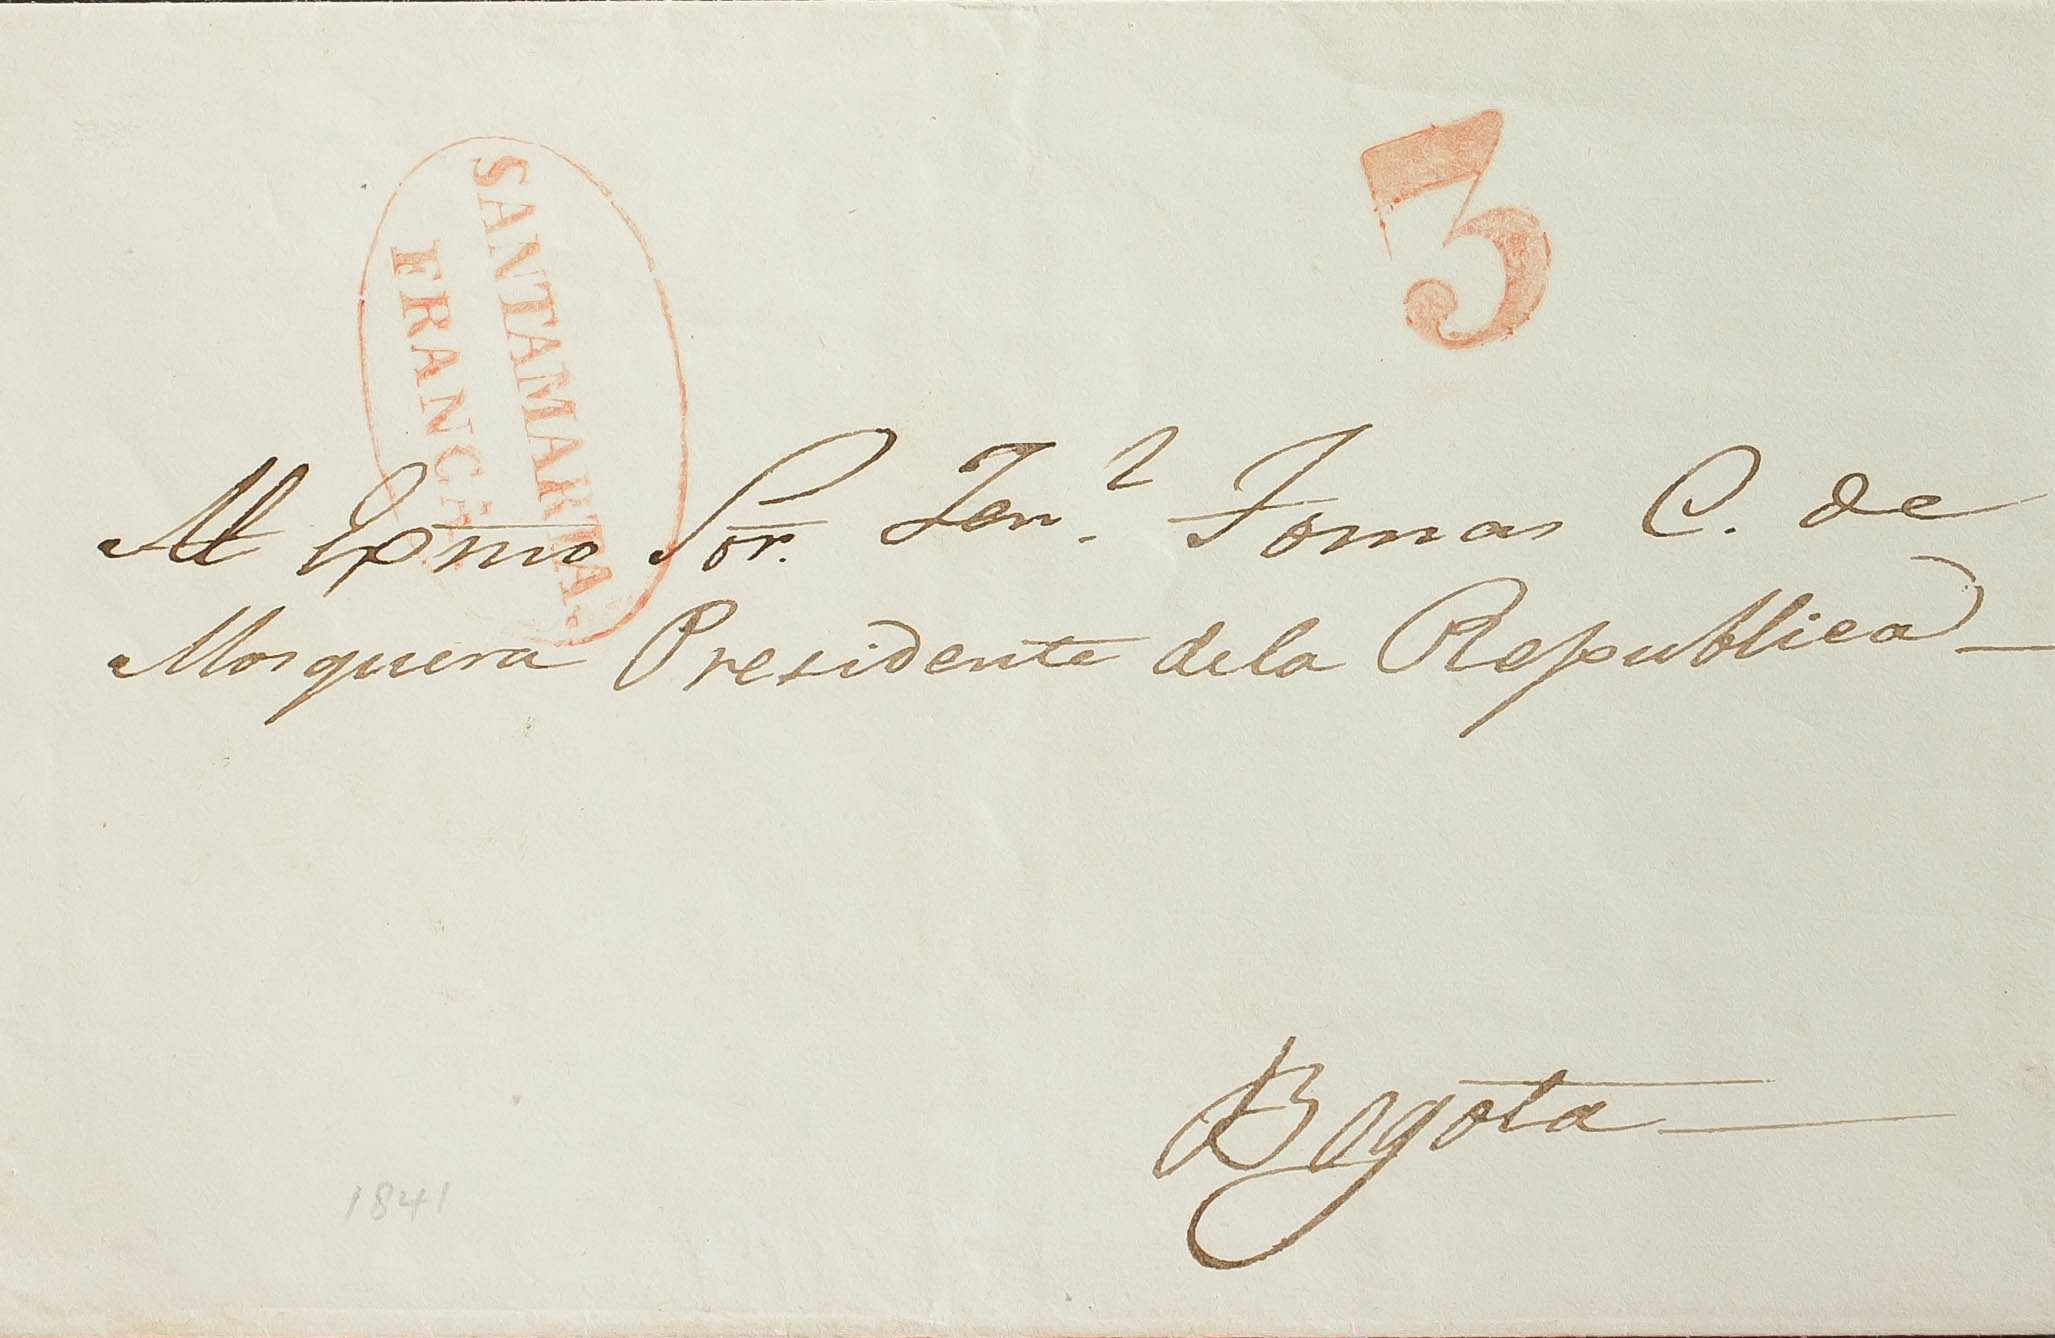 SANTAMARTA.
FRANCA
3
Al Exmo Sor. Jen.l Tomas C. de
Mosquera Presidente dela Republica
Bogota
1841